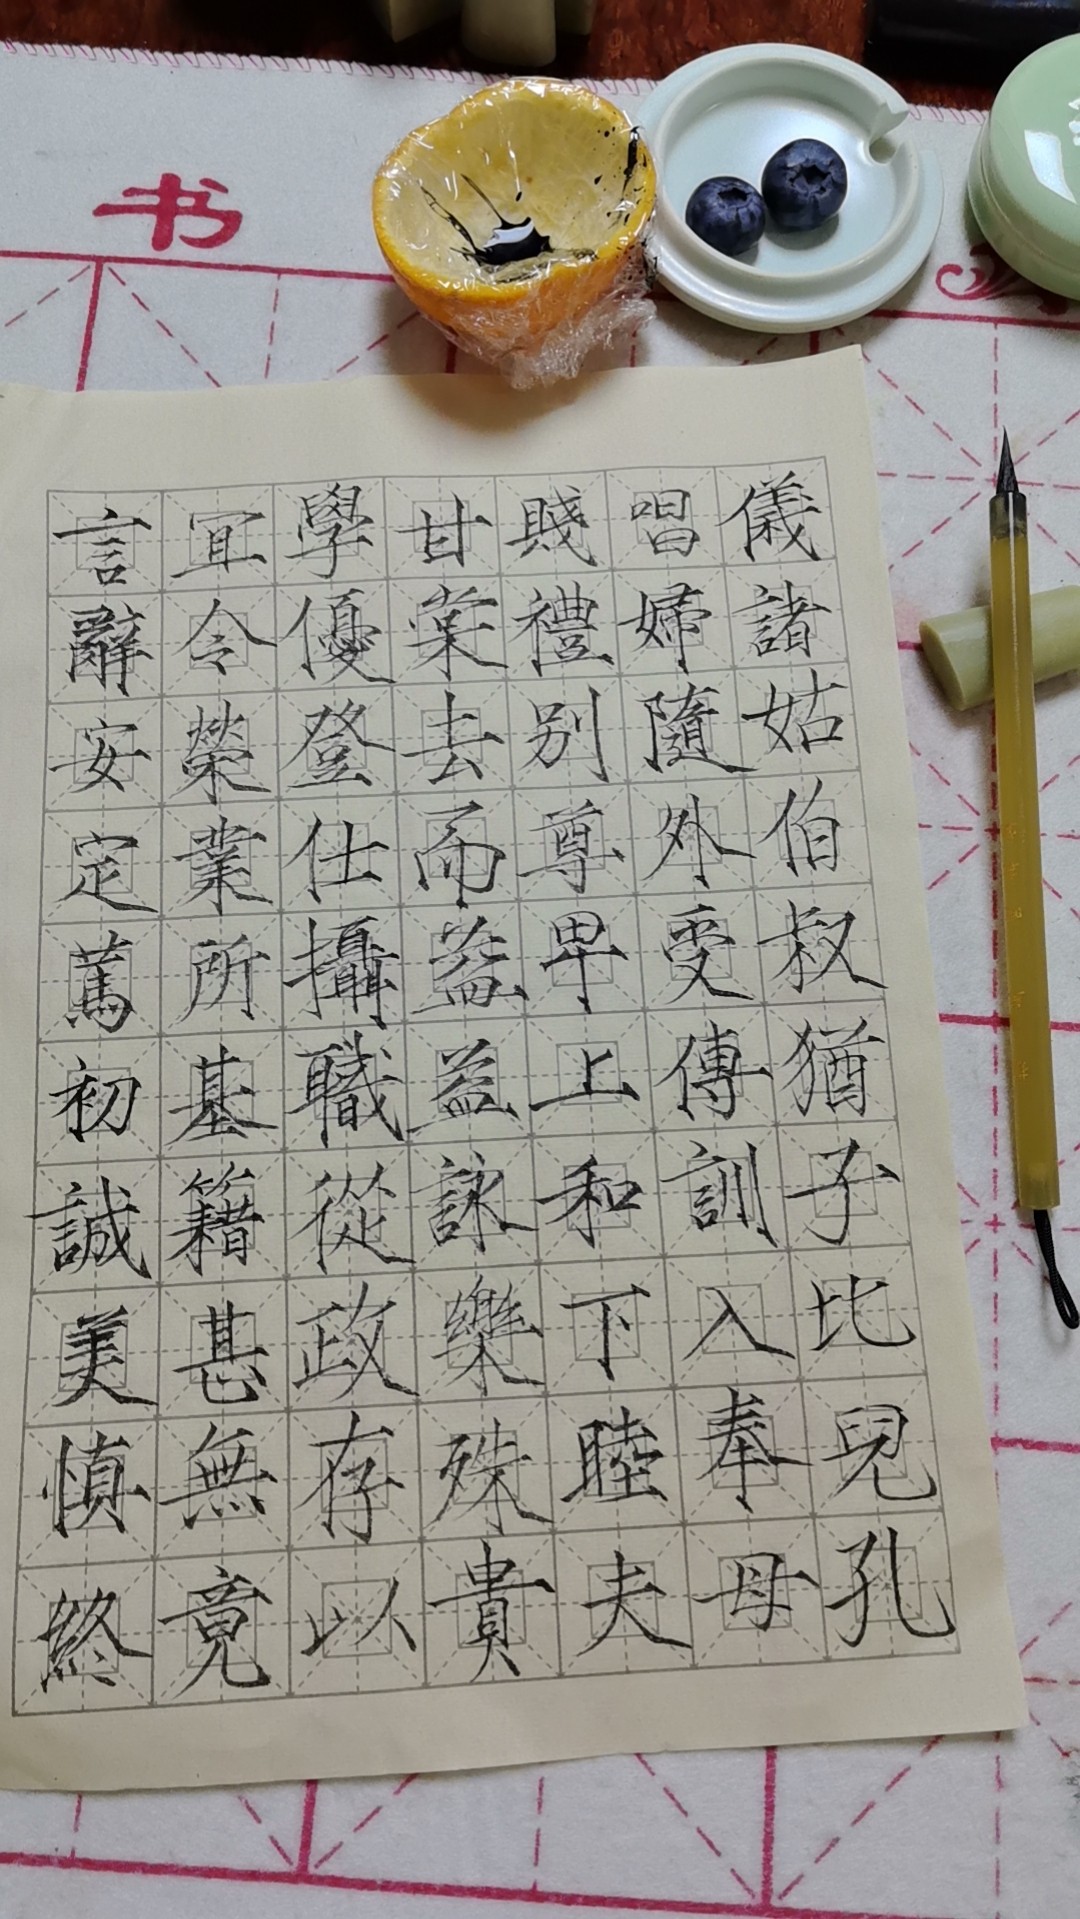 书
言辭安定篤初誠美慎終
宜令榮業所基籍甚無竟
學優登仕攝職從政存以
甘棠去而益益詠樂殊貴
賤禮别尊卑上和下睦夫
唱婦隨外受傅訓入奉母
儀諸姑伯叔猶子比兒孔